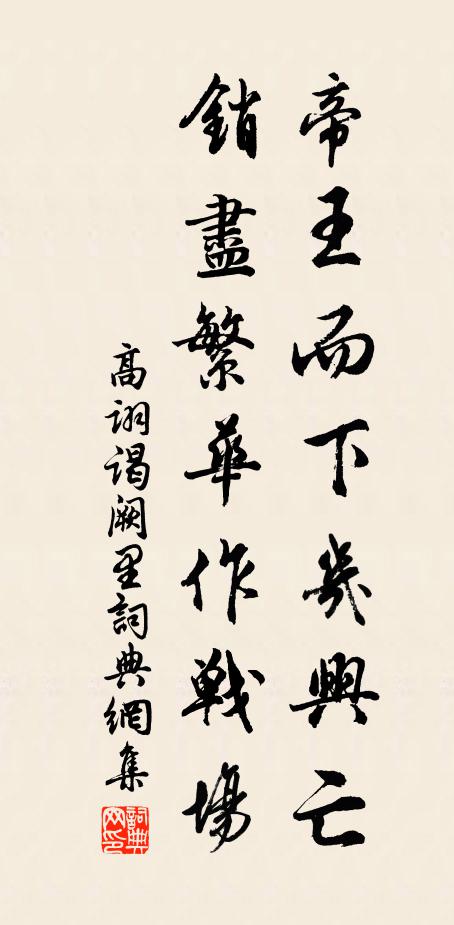 帝王而下幾興亡
銷盡繁華作戰場
高詡謁闕里詞典網集
詞典网印